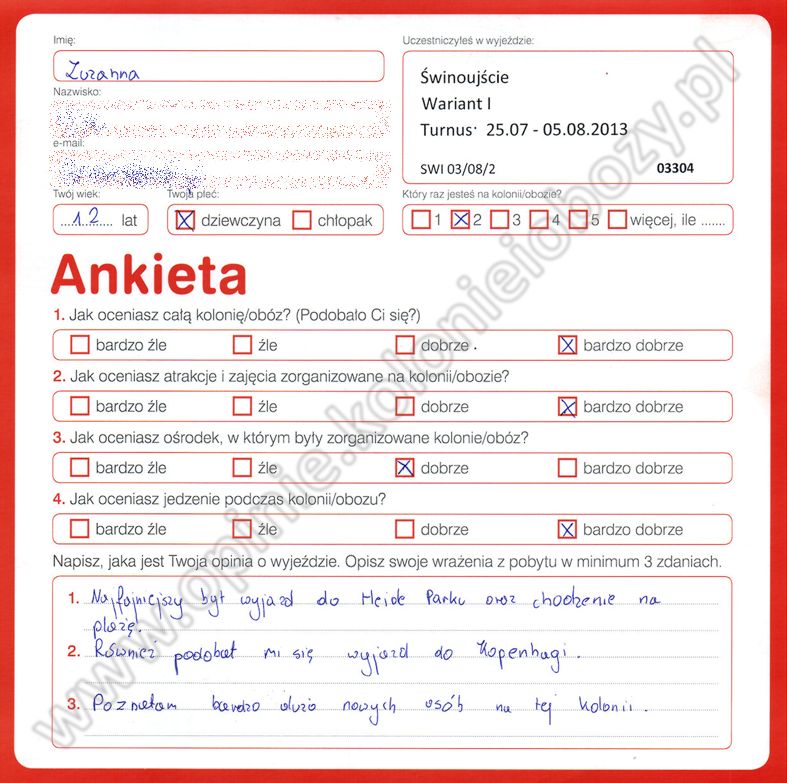 Imię:
Zuzanna
Nazwisko:
e-mail:
Twój wiek:
12 lat
Twoja płeć:
dziewczyna chłopak
Uczestniczyłeś w wyjeździe:
Świnoujście
Wariant I
Turnus: 25.07 - 05.08.2013
SWI 03/08/2 03304
Który raz jesteś na kolonii/obozie?
1 2 3 4 5 więcej, ile .......
Ankieta
1. Jak oceniasz całą kolonię/obóz? (Podobało Ci się?)
bardzo źle źle dobrze bardzo dobrze
2. Jak oceniasz atrakcje i zajęcia zorganizowane na kolonii/obozie?
bardzo źle źle dobrze bardzo dobrze
3. Jak oceniasz ośrodek, w którym były zorganizowane kolonie/obóz?
bardzo źle źle dobrze bardzo dobrze
4. Jak oceniasz jedzenie podczas kolonii/obozu?
bardzo źle źle dobrze bardzo dobrze
Napisz, jaka jest Twoja opinia o wyjeździe. Opisz swoje wrażenia z pobytu w minimum 3 zdaniach.
1. Najfajniejszy był wyjazd do Heide Parku oraz chodzenie na
plażę.
2. Również podobał mi się wyjazd do Kopenhagi.
3. Poznałam bardzo dużo nowych osób na tej kolonii.
www.opinie.kolonieiobozy.pl